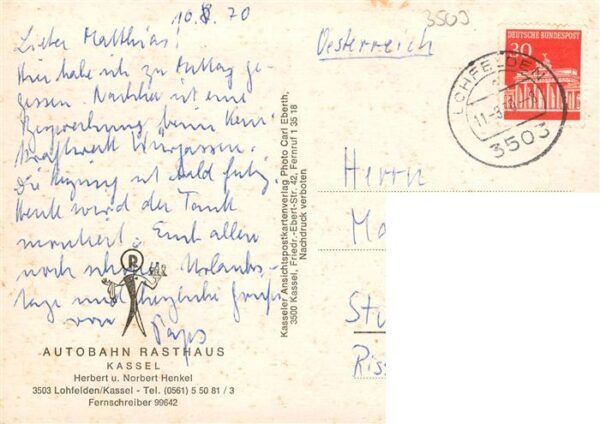 10.8.70
Lieber Matthias!
Hier habe ich zu Mittag ge-
gessen. Nachher ist eine
beim Kern-
kraftwerk Würgassen.
Die ist bald fertig.
Heute wird der Tank
montiert. Euch allen
noch schöne Urlaubs-
tage und herzliche Grüße
von Paps
R
AUTOBAHN RASTHAUS
KASSEL
Herbert u. Norbert Henkel
3503 Lohfelden/Kassel - Tel. (0561) 5 50 81 / 3
Fernschreiber 99642
Kasseler Ansichtspostkartenverlag Photo Carl Eberth,
3500 Kassel, Friedr.-Ebert-Str. 42, Fernruf 1 35 18
Nachdruck verboten
3503
Oesterreich
DEUTSCHE BUNDESPOST
30
LOHFELDEN
3503
Herrn
Ma
St
Ris